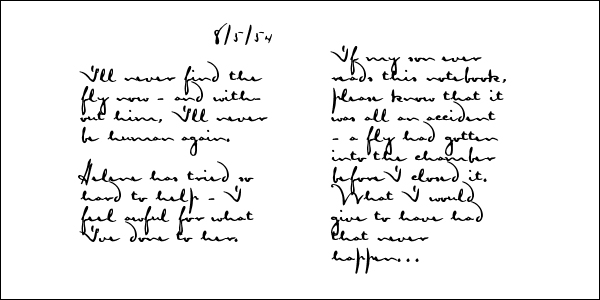 8/5/54
I'll never find the
fly now - and with-
out him, I'll never
be human again.
Helene has tried so
hard to help - I
feel awful for what
I've done to her.
If my son ever
reads this notebook,
please know that it
was all an accident
- a fly had gotten
into the chamber
before I closed it.
What I would
give to have had
that never
happen...